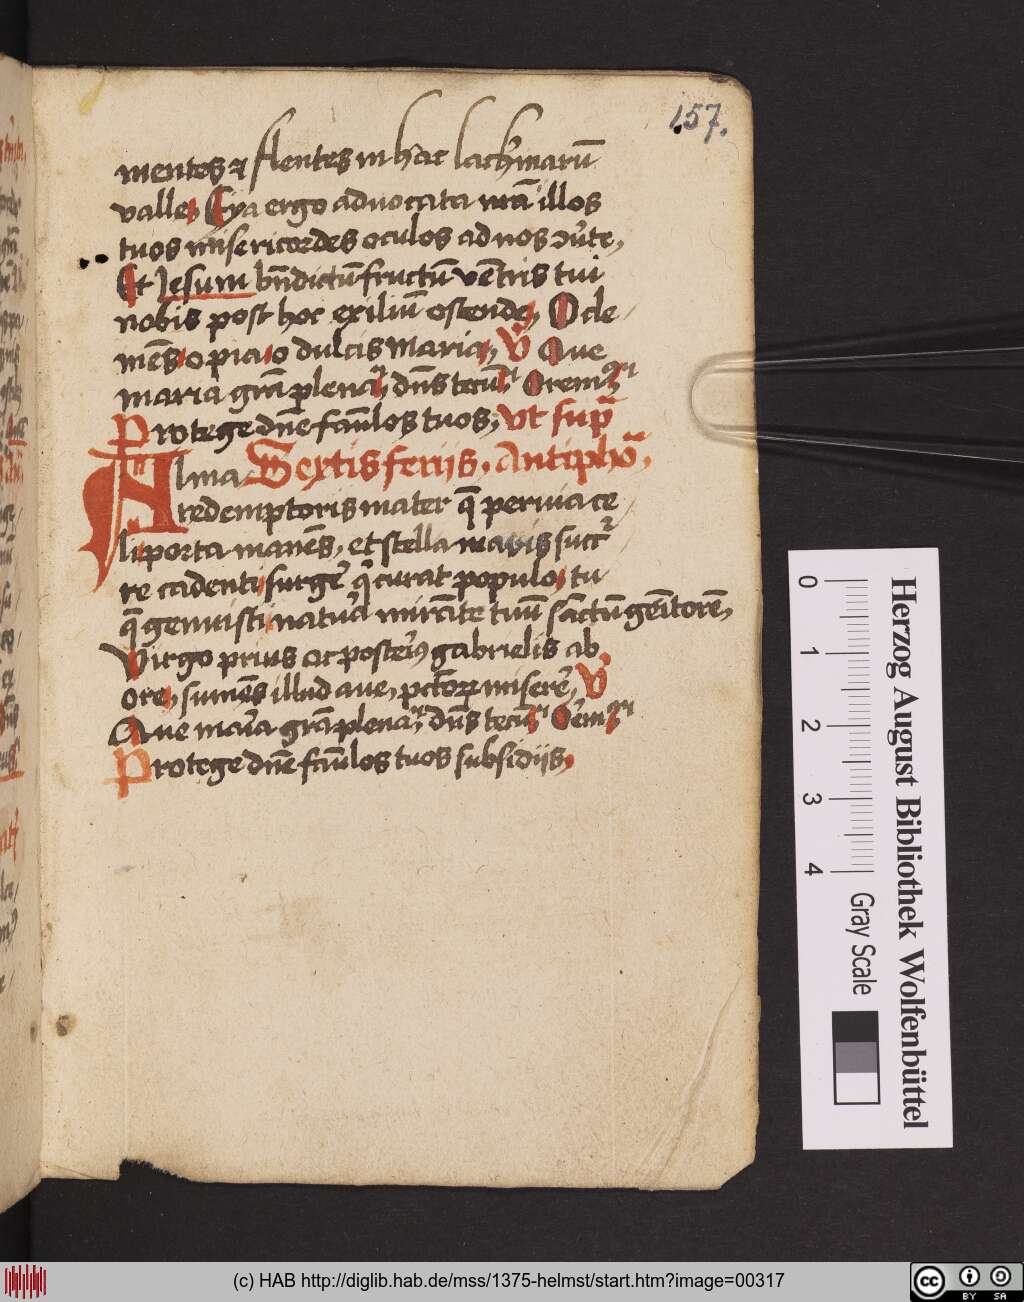 157.
mentes et flentes in hac lachrimarū
valle, Eya ergo aduocata nrā illos
tuos misericordes oculos ad nos ↄũte,
Et Jesum bn̄dictū fructū vētris tui
nobis post hoc exiliū ostende, O cle/
mēs o pia o dulcis Maria, V̊ Aue
maria grā plena, dn̄s tecū Oremꝰ
Protege dn̄e famĺos tuos, Vt sup̄
Alma Sextis ferijs. Antiphō.
redemptoris mater q̄ peruia ce/
li porta manēs, et stella maris succr̃/
re cadenti surger̃ q̇ curat populo, tu
q̄ genuisti natura mirāte tuū sāctū gēitorē,
Virgo prius ac posteriꝰ gabrielis ab
ore, sumēs illud aue, pctōꝝ miserēr, V̊
Aue maria grā plena, dn̄s tecū Orēmꝰ
Protege dn̄e famĺos tuos subsidijs,
0 1 2 3 4
Herzog August Bibliothek Wolfenbüttel
Gray Scale
(c) HAB http://diglib.hab.de/mss/1375-helmst/start.htm?image=00317
cc BY SA